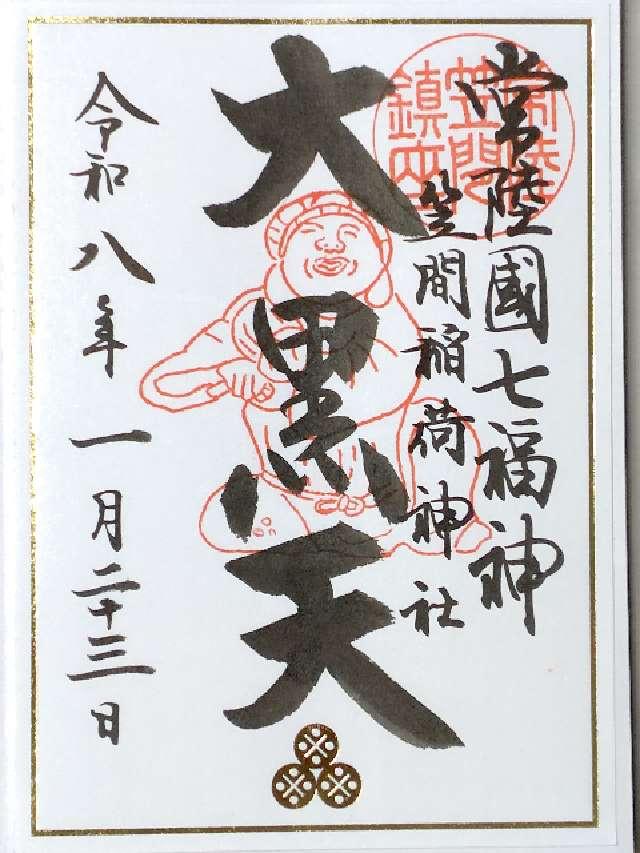 常陸國七福神
笠間稲荷神社
大黒天
令和八年一月二十三日